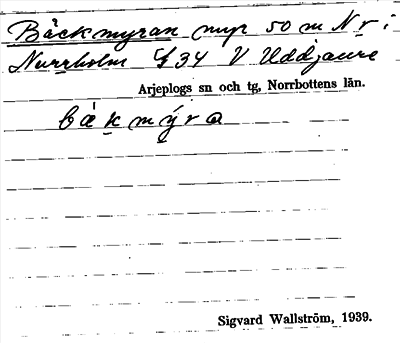 Bäckmyran myr 50 m N r i
Nurrholm 34 V Uddjaure
Arjeplogs sn och tg, Norrbottens län.
bäkmýra
Sigvard Wallström, 1939.